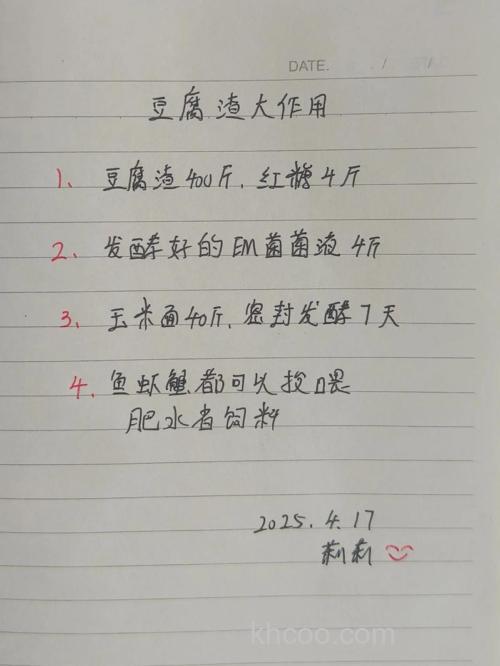 DATE. / /
豆腐渣大作用
1、豆腐渣400斤，红糖4斤
2、发酵好的EM菌菌液4斤
3、玉米面40斤，密封发酵7天
4、鱼虾蟹都可以投喂
肥水省饲料
2025.4.17
莉莉
khcoo.com